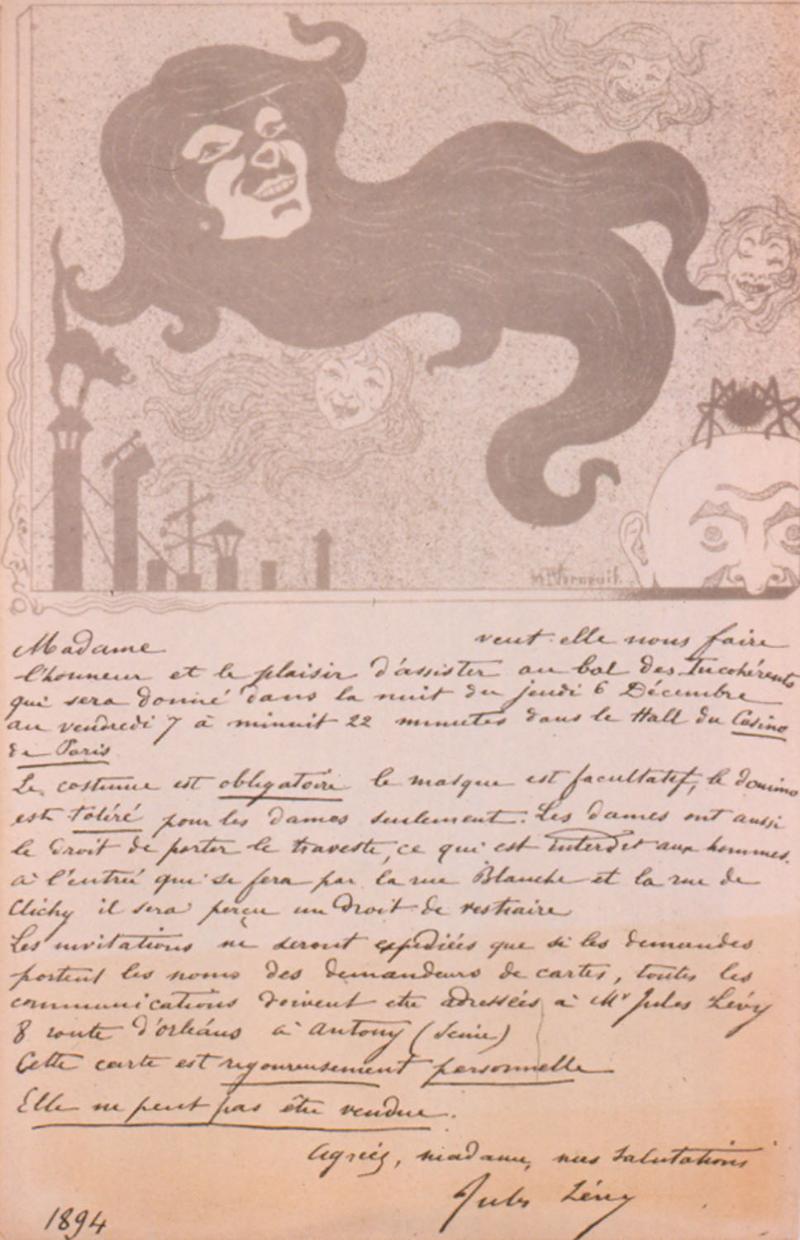 M P Verneuil.
Madame veut-elle nous faire
l'honneur et le plaisir d'assister au bal des Incohérents
qui sera donné dans la nuit du jeudi 6 Décembre
au vendredi 7 à minuit 22 minutes dans le Hall du Casino
de Paris
Le costume est obligatoire le masque est facultatif, le domino
est toléré pour les dames seulement. Les dames ont aussi
le droit de porter le travesti, ce qui est interdit aux hommes.
à l'entrée qui se fera par la rue Blanche et la rue de
Clichy il sera perçu un droit de vestiaire
Les invitations ne seront expédiées que si les demandes
portent les noms des demandeurs de cartes, toutes les
communications doivent être adressées à Mr Jules Lévy
8 route d'orléans à Antony (Seine)
Cette carte est rigoureusement personnelle
Elle ne peut pas être vendue.
Agréez, madame, nos salutations
Jules Lévy
1894